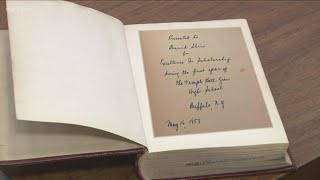 Presented to
David Shire
for
Excellence in Scholarship
during the first year of
The Temple Beth Zion
High School
Buffalo, N.Y
May 16, 1953